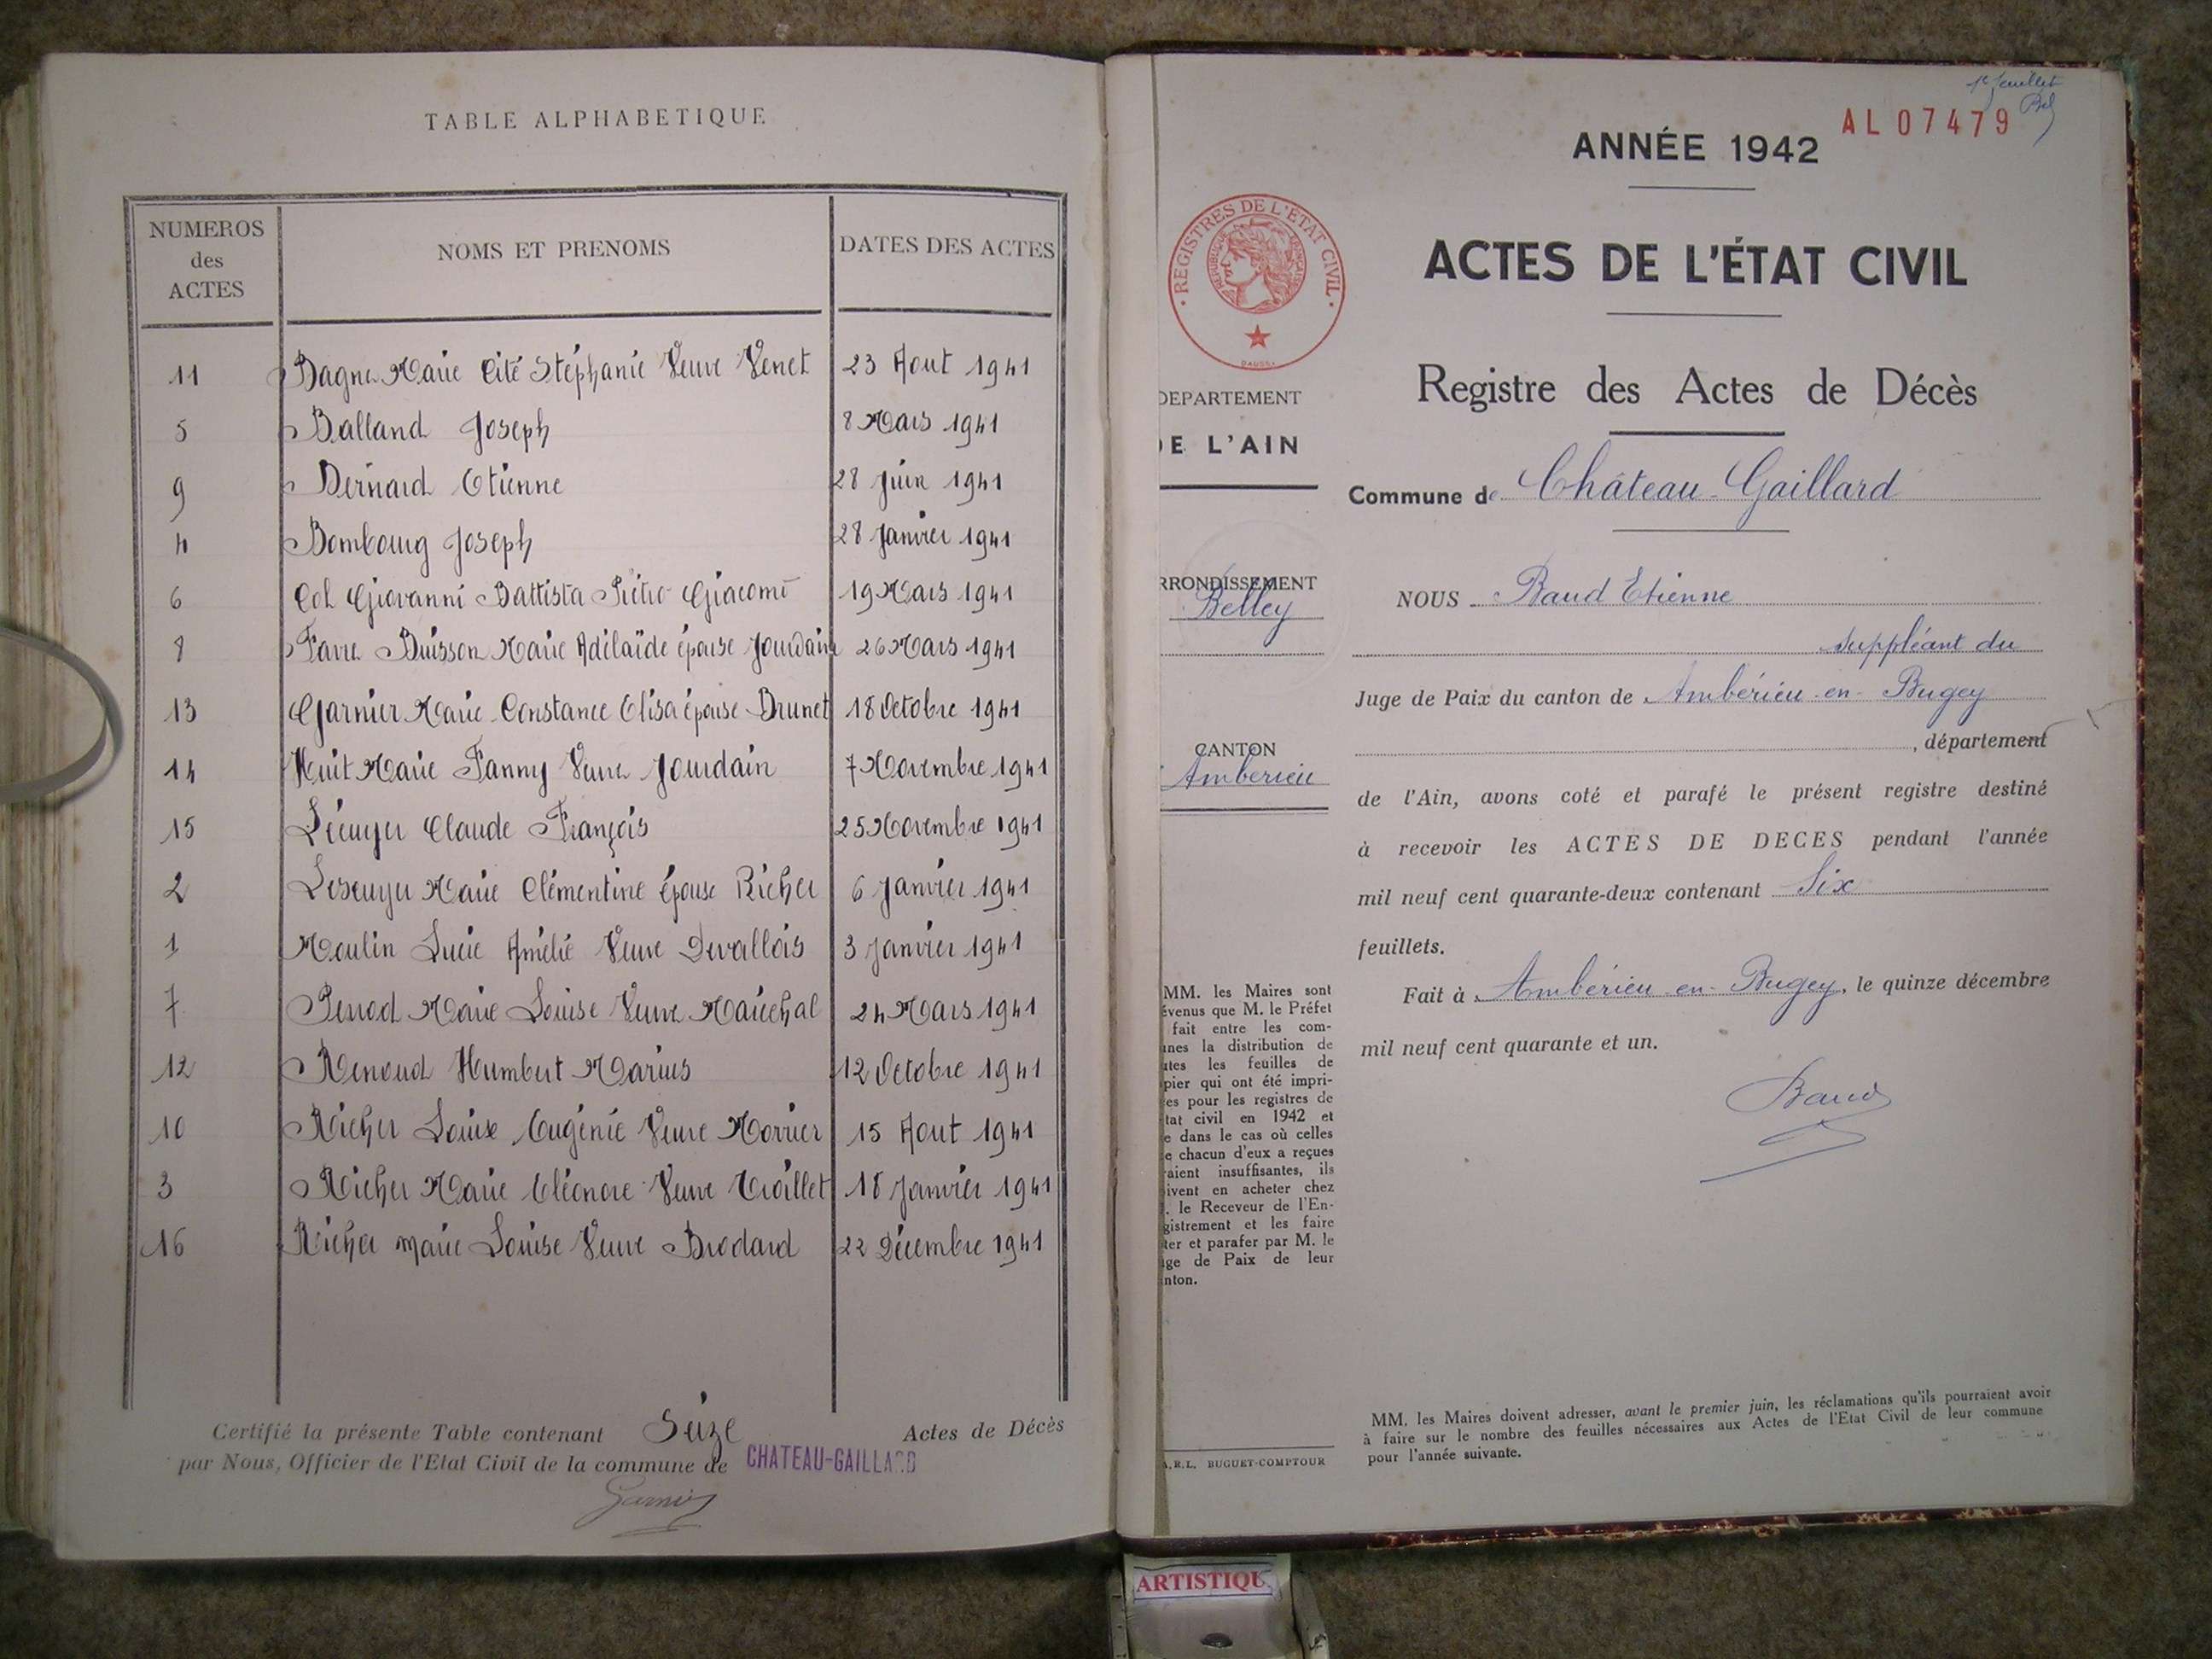 TABLE ALPHABETIQUE
NUMEROS des ACTES
NOMS ET PRENOMS
DATES DES ACTES
11 Bagne Marie Cité Stéphanie Veuve Venet 23 Aout 1941
5 Balland Joseph 8 Mars 1941
9 Bernard Etienne 28 Juin 1941
4 Bombourg Joseph 28 Janvier 1941
6 Col Giovanni Battista Pietro Giacomo 19 Mars 1941
8 Favre Buisson Marie Adélaïde épouse Jourdain 26 Mars 1941
13 Garnier Marie Constance Elisa épouse Brunet 18 Octobre 1941
14 Huit Marie Fanny Veuve Jourdain 7 Novembre 1941
15 Lécuyer Claude François 25 Novembre 1941
2 Lescuyer Marie Clémentine épouse Richer 6 Janvier 1941
1 Moulin Lucie Amélie Veuve Devallois 3 Janvier 1941
7 Penod Marie Louise Veuve Maréchal 24 Mars 1941
12 Renoud Humbert Marius 12 Octobre 1941
10 Richer Louise Eugénie Veuve Morrier 15 Aout 1941
3 Richer Marie Eléonore Veuve Troillet 18 Janvier 1941
16 Richer Marie Louise Veuve Brodard 22 Décembre 1941
Certifié la présente Table contenant Seize Actes de Décès
par Nous, Officier de l'Etat Civil de la commune de CHATEAU-GAILLARD
Garnier
1er feuillet
AL 07479
ANNÉE 1942
REGISTRES DE L'ÉTAT CIVIL
RÉPUBLIQUE FRANÇAISE
ACTES DE L'ÉTAT CIVIL
Registre des Actes de Décès
DEPARTEMENT
DE L'AIN
RRONDISSEMENT
Belley
CANTON
Ambérieu
MM. les Maires sont
évenus que M. le Préfet
fait entre les com-
unes la distribution de
utes les feuilles de
pier qui ont été impri-
es pour les registres de
tat civil en 1942 et
e dans le cas où celles
e chacun d'eux a reçues
raient insuffisantes, ils
ivent en acheter chez
. le Receveur de l'En-
gistrement et les faire
ter et parafer par M. le
ge de Paix de leur
nton.
A.R.L. BUGUET-COMPTOUR
Commune de Château-Gaillard
NOUS Baud Etienne
suppléant du
Juge de Paix du canton de Ambérieu-en-Bugey
, département
de l'Ain, avons coté et parafé le présent registre destiné
à recevoir les ACTES DE DECES pendant l'année
mil neuf cent quarante-deux contenant Six
feuillets.
Fait à Ambérieu-en-Bugey, le quinze décembre
mil neuf cent quarante et un.
Baud
MM. les Maires doivent adresser, avant le premier juin, les réclamations qu'ils pourraient avoir
à faire sur le nombre des feuilles nécessaires aux Actes de l'Etat Civil de leur commune
pour l'année suivante.
ARTISTIQU